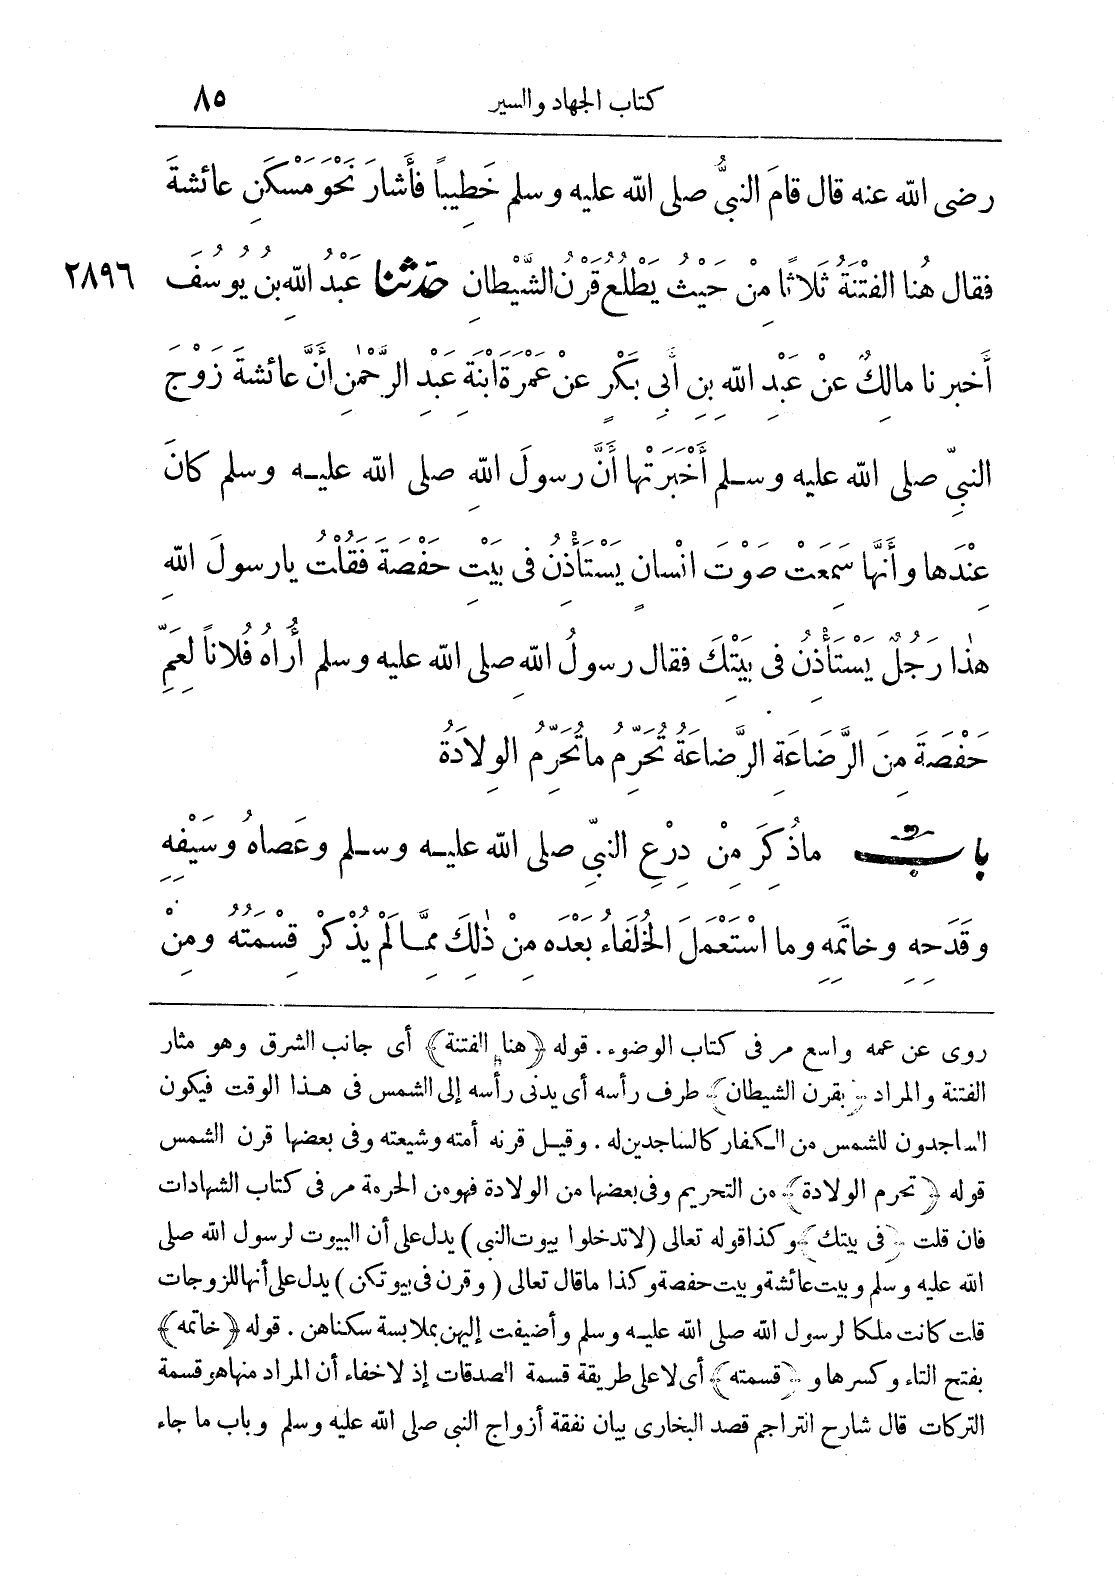 كتاب الجهاد والسير ٨٥
رضى الله عنه قال قامَ النبىُّ صلى الله عليه وسلم خَطِيباً فأَشارَ نَحْوَ مَسْكَنِ عائشةَ
فقال هُنا الفتْنَةُ ثَلاثًا مِنْ حَيْثُ يَطْلُعُ قَرْنُ الشَّيْطانِ حَدّثنا عَبْدُ اللهِ بنُ يُوسُفَ ٢٨٩٦
أَخبرنا مالِكٌ عنْ عَبْدِ اللهِ بنِ أَبِى بَكْرٍ عنْ عَمْرَةَ ابْنَةِ عَبْدِ الرَّحْمٰنِ أَنَّ عائشةَ زَوْجَ
النبىِّ صلى الله عليه وسلم أَخْبَرَتْها أَنَّ رسولَ اللهِ صلى الله عليه وسلم كانَ
عِنْدَها وأَنَّها سَمِعَتْ صَوْتَ انْسانٍ يَسْتَأْذِنُ فى بَيْتِ حَفْصَةَ فَقُلْتُ يارسولَ اللهِ
هذٰا رَجُلٌ يَسْتَأْذِنُ فى بَيْتِكَ فقال رسولُ اللهِ صلى الله عليه وسلم أُراهُ فُلاناً لعَمِّ
حَفْصَةَ مِنَ الرَّضَاعَةِ الرَّضاعَةُ تُحَرِّمُ ماتُحَرِّمُ الوِلادَةُ
بابٌ ماذُكِرَ مِنْ دِرْعِ النبىِّ صلى الله عليه وسلم وعَصاهُ وسَيْفِهِ
وقَدَحِهِ وخاتَمِهِ وما اسْتَعْمَلَ الخُلَفاءُ بَعْدَه مِنْ ذٰلِكَ مِمَّا لَمْ يُذْكَرْ قِسْمَتُهُ ومِنْ
روى عن عمه واسع مر فى كتاب الوضوء. قوله ﴿هنا الفتنة﴾ أى جانب الشرق وهو مثار
الفتنة والمراد ﴿بقرن الشيطان﴾ طرف رأسه أى يدنى رأسه إلى الشمس فى هذا الوقت فيكون
الساجدون للشمس من الكفار كالساجدين له. وقيل قرنه أمته وشيعته وفى بعضها قرن الشمس
قوله ﴿تحرم الولادة﴾ من التحريم وفى بعضها من الولادة فهو من الحرمة مر فى كتاب الشهادات
فان قلت ﴿فى بيتك﴾ وكذا قوله تعالى (لا تدخلوا بيوت النبى) يدل على أن البيوت لرسول الله صلى
الله عليه وسلم وبيت عائشة وبيت حفصة وكذا ما قال تعالى (وقرن فى بيوتكن) يدل على أنها للزوجات
قلت كانت ملكا لرسول الله صلى الله عليه وسلم وأضيفت إليهن بملابسة سكناهن. قوله ﴿خاتمه﴾
بفتح التاء وكسرها و﴿قسمته﴾ أى لا على طريقة قسمة الصدقات إذ لا خفاء أن المراد منها هو قسمة
التركات قال شارح التراجم قصد البخارى بيان نفقة أزواج النبى صلى الله عليه وسلم وباب ما جاء